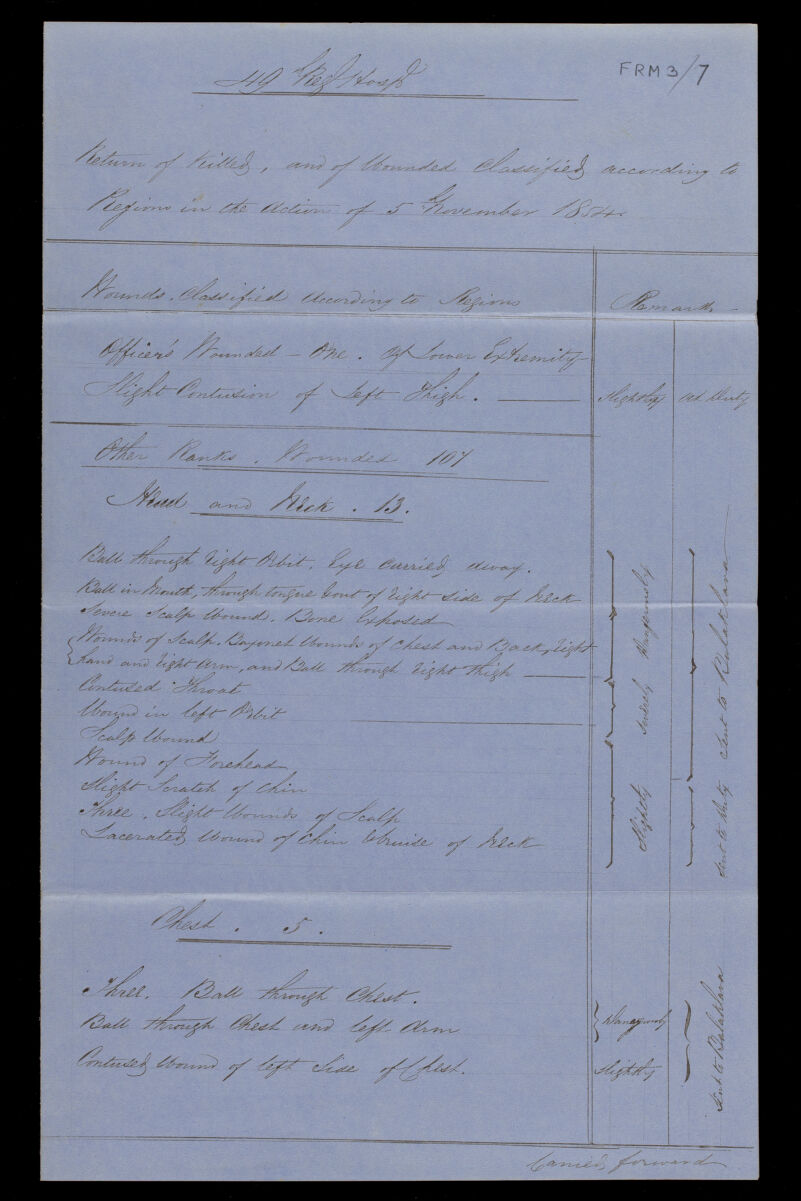 FRM 3/7
49 Regt Hospl
Return of Killed, and of Wounded Classified according to
Regions in the Action of 5 November 1854.
Wounds Classified According to Regions
Remarks
Officer's Wounded - One. Of Lower Extremity
Slight Contusion of left Thigh.
Slightly
at Duty
Other Ranks. Wounded 107
Head and Neck. 13.
Ball through right Orbit. Eye carried away.
Ball in Mouth, through tongue & out of right side of Neck
Severe Scalp Wound. Bone Exposed
Wounds of Scalp. Bayonet Wounds of Chest and Back, right
hand and right Arm, and Ball through right thigh
Contused Throat
Wound in left Orbit
Scalp Wound
Wound of Forehead
Slight Scratch of Chin
Three. Slight Wounds of Scalp
Lacerated Wound of Chin & bruise of Neck
Dangerously
Severely
Slightly
Sent to Balaklava
Sent to Duty
Chest. 5.
Three. Ball through Chest.
Ball through Chest and left Arm
Dangerously
Contused Wound of left Side of Chest.
Slightly
Sent to Balaklava
Carried forward